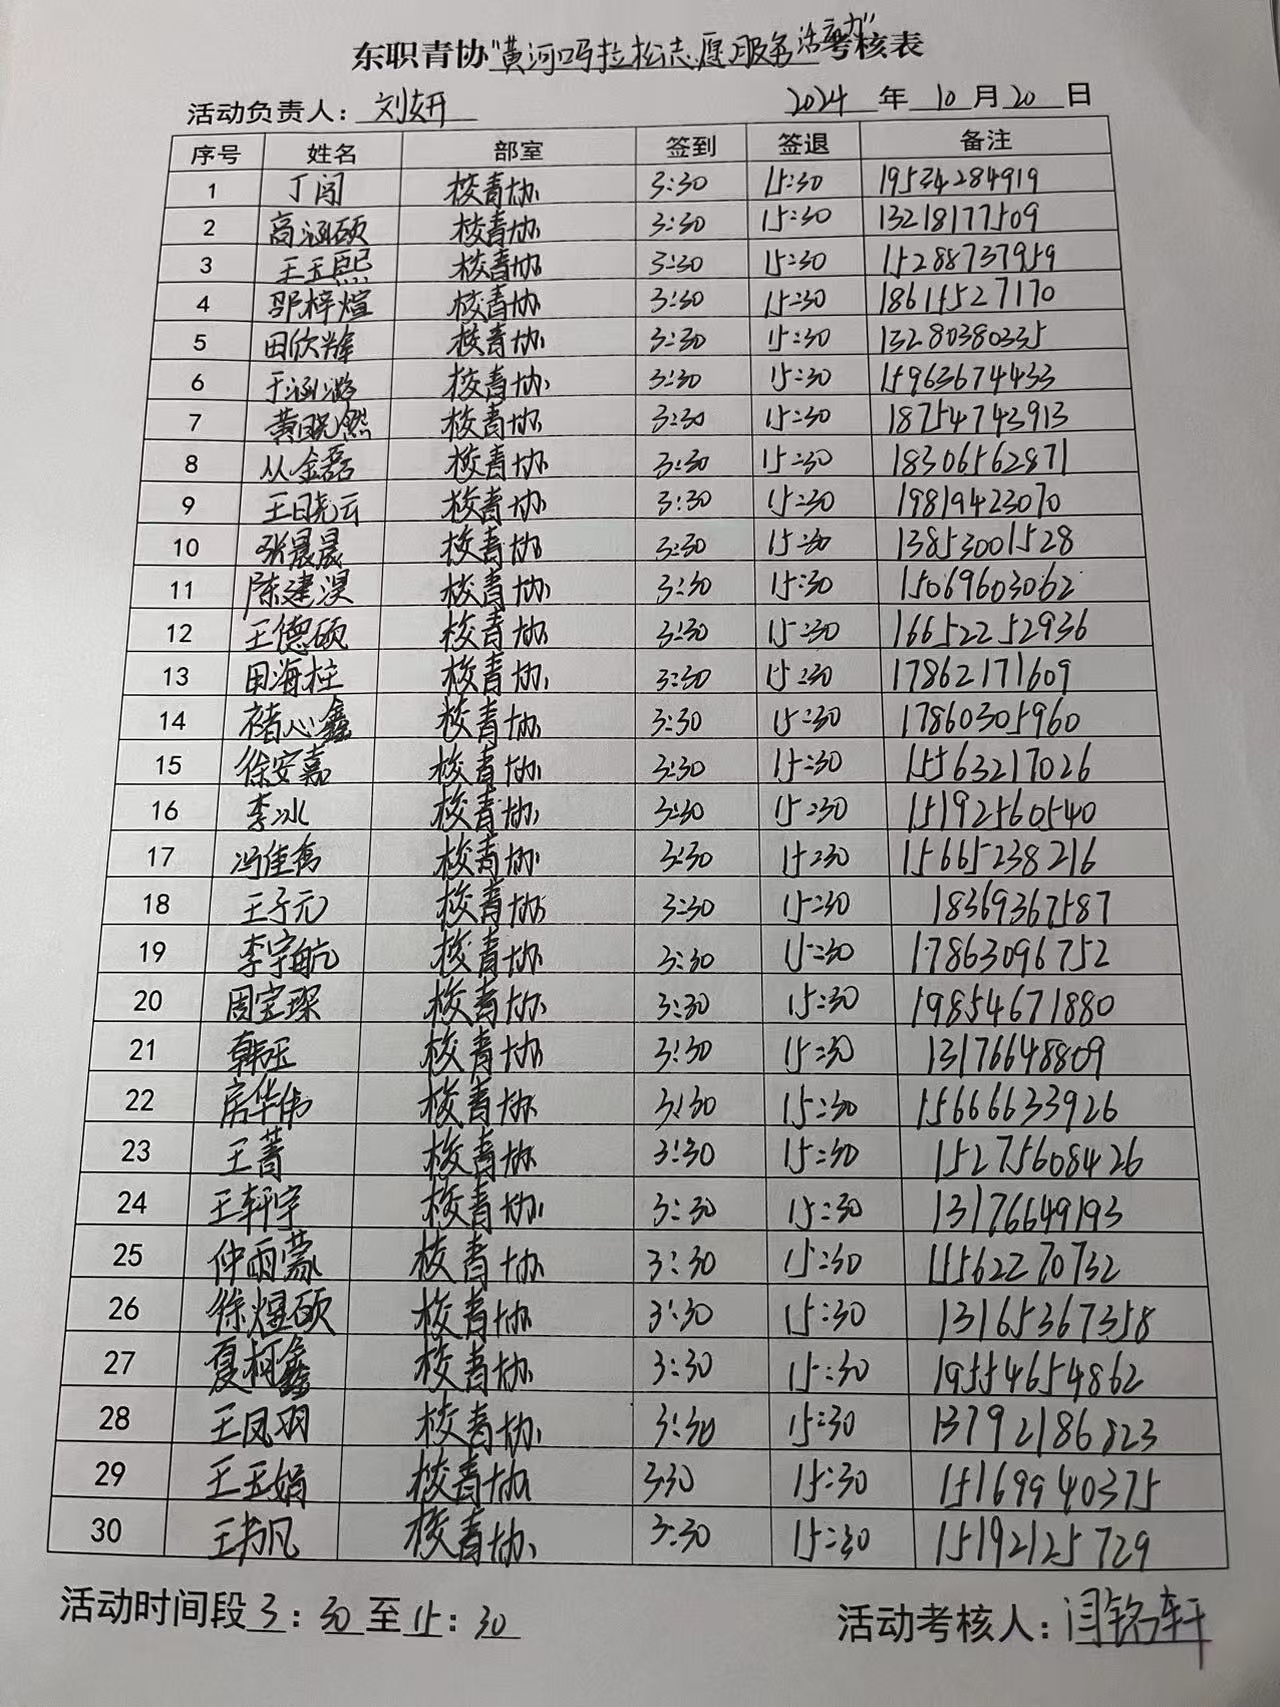 东职青协"黄河吗拉松志愿服务活动"考核表
活动负责人：刘妍 2024年10月20日
序号 姓名 部室 签到 签退 备注
1 丁闯 校青协 3:30 15:30 19534284919
2 高涵硕 校青协 3:30 15:30 13218177509
3 王玉熙 校青协 3:30 15:30 15288737959
4 邵梓煊 校青协 3:30 15:30 18615527170
5 田欣烽 校青协 3:30 15:30 13280380335
6 于涵潞 校青协 3:30 15:30 15963674433
7 黄晓然 校青协 3:30 15:30 18754743913
8 从金磊 校青协 3:30 15:30 18306562871
9 王晓云 校青协 3:30 15:30 19819423070
10 张晨晟 校青协 3:30 15:30 13853001528
11 陈建淏 校青协 3:30 15:30 15069603062
12 王德硕 校青协 3:30 15:30 16652252936
13 田海柱 校青协 3:30 15:30 17862171609
14 褚心鑫 校青协 3:30 15:30 17860305960
15 徐安嘉 校青协 3:30 15:30 15563217026
16 李冰 校青协 3:30 15:30 15192560540
17 冯佳裔 校青协 3:30 15:30 15665238216
18 王子元 校青协 3:30 15:30 18369367587
19 李宇航 校青协 3:30 15:30 17863096752
20 周宝琛 校青协 3:30 15:30 19854671880
21 韩珏 校青协 3:30 15:30 13176648809
22 房华伟 校青协 3:30 15:30 15666633926
23 王菁 校青协 3:30 15:30 15275608426
24 王轩宇 校青协 3:30 15:30 13176649193
25 仲雨蒙 校青协 3:30 15:30 15562270732
26 徐煜硕 校青协 3:30 15:30 13165367358
27 夏柯鑫 校青协 3:30 15:30 19554654862
28 王凤羽 校青协 3:30 15:30 13792186823
29 王玉娟 校青协 3:30 15:30 15169940375
30 王书凡 校青协 3:30 15:30 15192125729
活动时间段3：30至15：30 活动考核人：闫铭轩